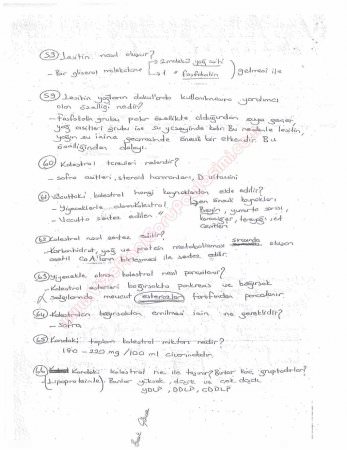 58) Lesitin nasıl oluşur?
- Bir gliserol molekülüne 2 molekül yağ asiti
1 " fosfokolin gelmesi ile
59) Lesitin yağların dokularda kullanılmasına yardımcı
olan özelliği nedir?
- Fosfokolin grubu, polar özellikte olduğundan suya geçer,
yağ asitleri grubu ise su yüzeyinde kalır. Bu nedenle lesitin,
yağın su içine geçmesinde önemli bir etkendir. Bu
özelliğinden dolayı.
60) Kolestrol türevleri nelerdir?
- Safra asitleri, steroid hormonları, D vitamini
61) Vücuttaki kolestrol hangi kaynaklardan elde edilir?
- Yiyeceklerle alınan kolestrol
- Vücutta sentez edilen "
En önemli kaynakları
Beyin, yumurta sarısı,
karaciğer, tereyağı, et
çeşitleri
62) Kolestrol nasıl sentez edilir?
- Karbonhidrat, yağ ve protein metabolizması sırasında oluşan
asetil CoA'ların birleşmesi ile sentez edilir.
63) Yiyecekle alınan kolestrol nasıl parçalanır?
- Kolestrol esterleri bağırsakta pankreas ve bağırsak
salgılarında mevcut esterazlar tarafından parçalanır.
64) Kolestrolün bağırsaktan emilmesi için ne gereklidir?
- Safra
65) Kandaki toplam kolestrol miktarı nedir?
180 - 220 mg / 100 ml civarındadır.
66) Kandaki kolestrol ne ile taşınır? Bunlar kaç gruptadırlar?
- (Lipoproteinle) Bunlar yüksek, düşük ve çok düşük
YDLP, DDLP, ÇDDLP